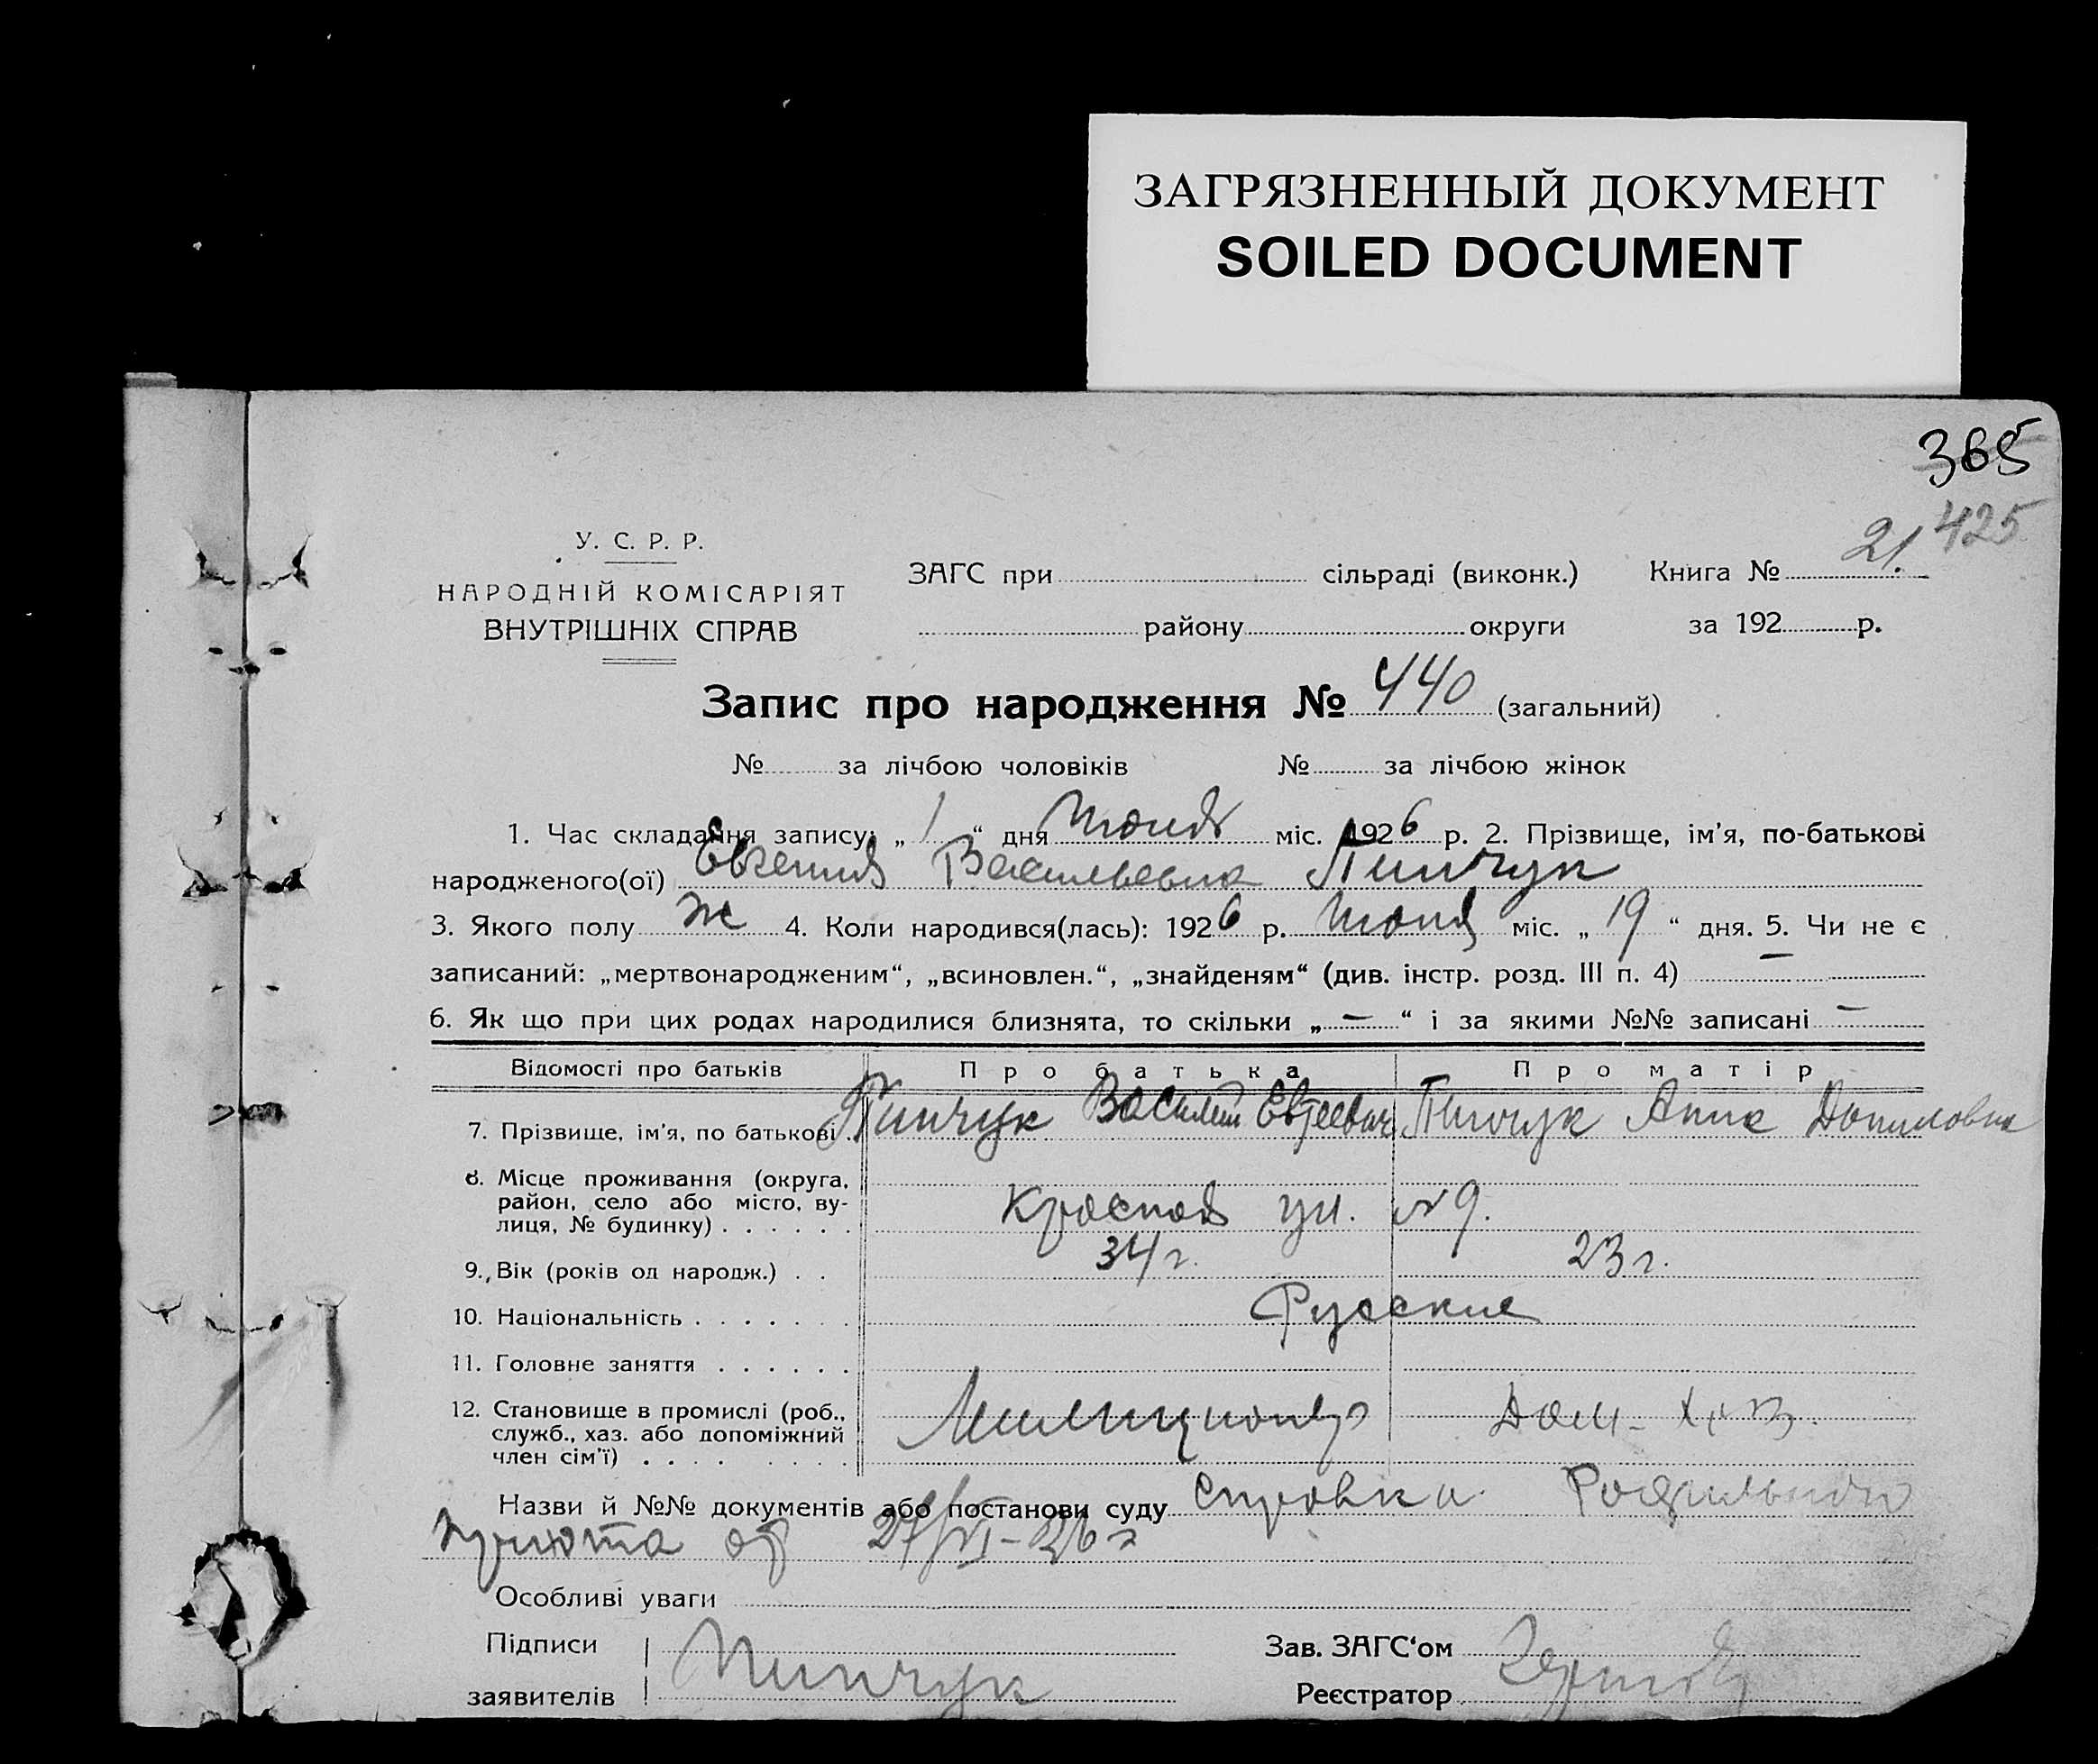 ЗАГРЯЗНЕННЫЙ ДОКУМЕНТ
SOILED DOCUMENT
365
425
У. С. Р. Р.
НАРОДНІЙ КОМІСАРІЯТ
ВНУТРІШНІХ СПРАВ
ЗАГС при сільраді (виконк.) Книга № 21.
району округи за 192 р.
Запис про народження № 440 (загальний)
№ за лічбою чоловіків № за лічбою жінок
1. Час складання запису: „ 1 “ дня міс. 1926 р. 2. Прізвище, ім'я, по-батькові
народженого(ої) Евгения Васильевна Пинчук
3. Якого полу ж 4. Коли народився(лась): 1926 р. Июня міс. „ 19 “ дня. 5. Чи не є
записаний: „мертвонародженим“, „всиновлен.“, „знайденям“ (див. інстр. розд. III п. 4) —
6. Як що при цих родах народилися близнята, то скільки „ — “ і за якими №№ записані —
Відомості про батьків Про батька Про матір
7. Прізвище, ім'я, по батькові . Пинчук Василий Евтеевич Пинчук Анна Даниловна
8. Місце проживання (округа,
район, село або місто, ву-
лиця, № будинку) . . . . . . Красная ул. №9.
9. Вік (років од народж.) . . 34 г. 23 г.
10. Національність . . . . . . . Русские
11. Головне заняття . . . . . .
12. Становище в промислі (роб.,
служб., хаз. або допоміжний
член сім'ї) . . . . . . . . Милиционер Дом- хоз.
Назви й №№ документів або постанови суду Справка Родильного
приюта от 27/VI-26 г
Особливі уваги
Підписи Пинчук Зав. ЗАГС'ом
заявителів Реєстратор